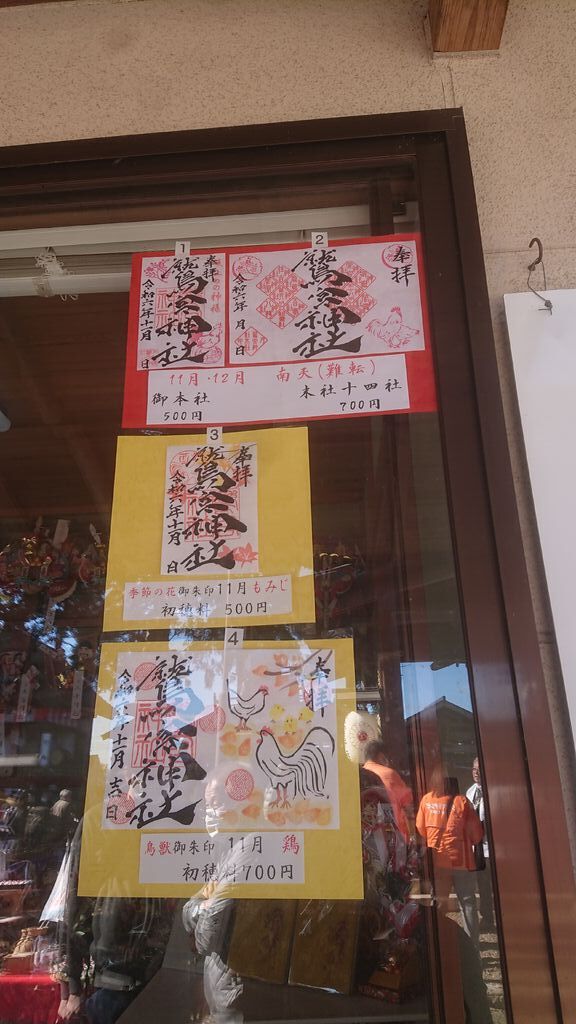 1
奉拝
鷲宮神社
令和六年十一月 日
2
奉拝
鷲宮神社
令和六年 月 日
11月・12月 南天(難転)
御本社 末社十四社
500円 700円
3
奉拝
鷲宮神社
令和六年十一月 日
季節の花御朱印11月もみじ
初穂料 500円
4
奉拝
鷲宮神社
令和六年十一月吉日
鳥獣御朱印 11月 鶏
初穂料700円